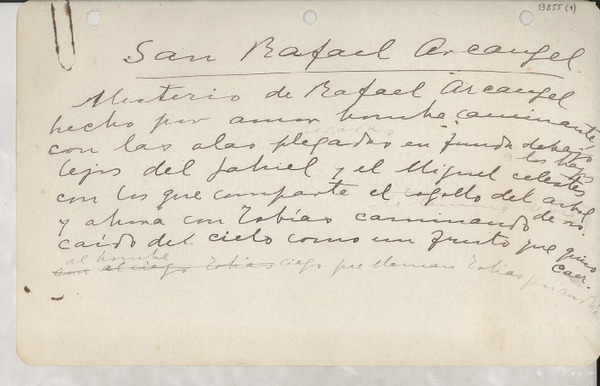 13855 (1)
San Rafael Arcangel.
Misterio de Rafael Arcangel
hecho por amor hombre caminante,
con las alas plegadas en funda debajo
lejos del Gabriel y el Miguel celestes
con los que comparte el cogollo del arbol
y ahora con Tobías caminando
caído del cielo como un fruto que quiso
caer.
al hombre
con el ciego Tobías ciego que llaman Tobías